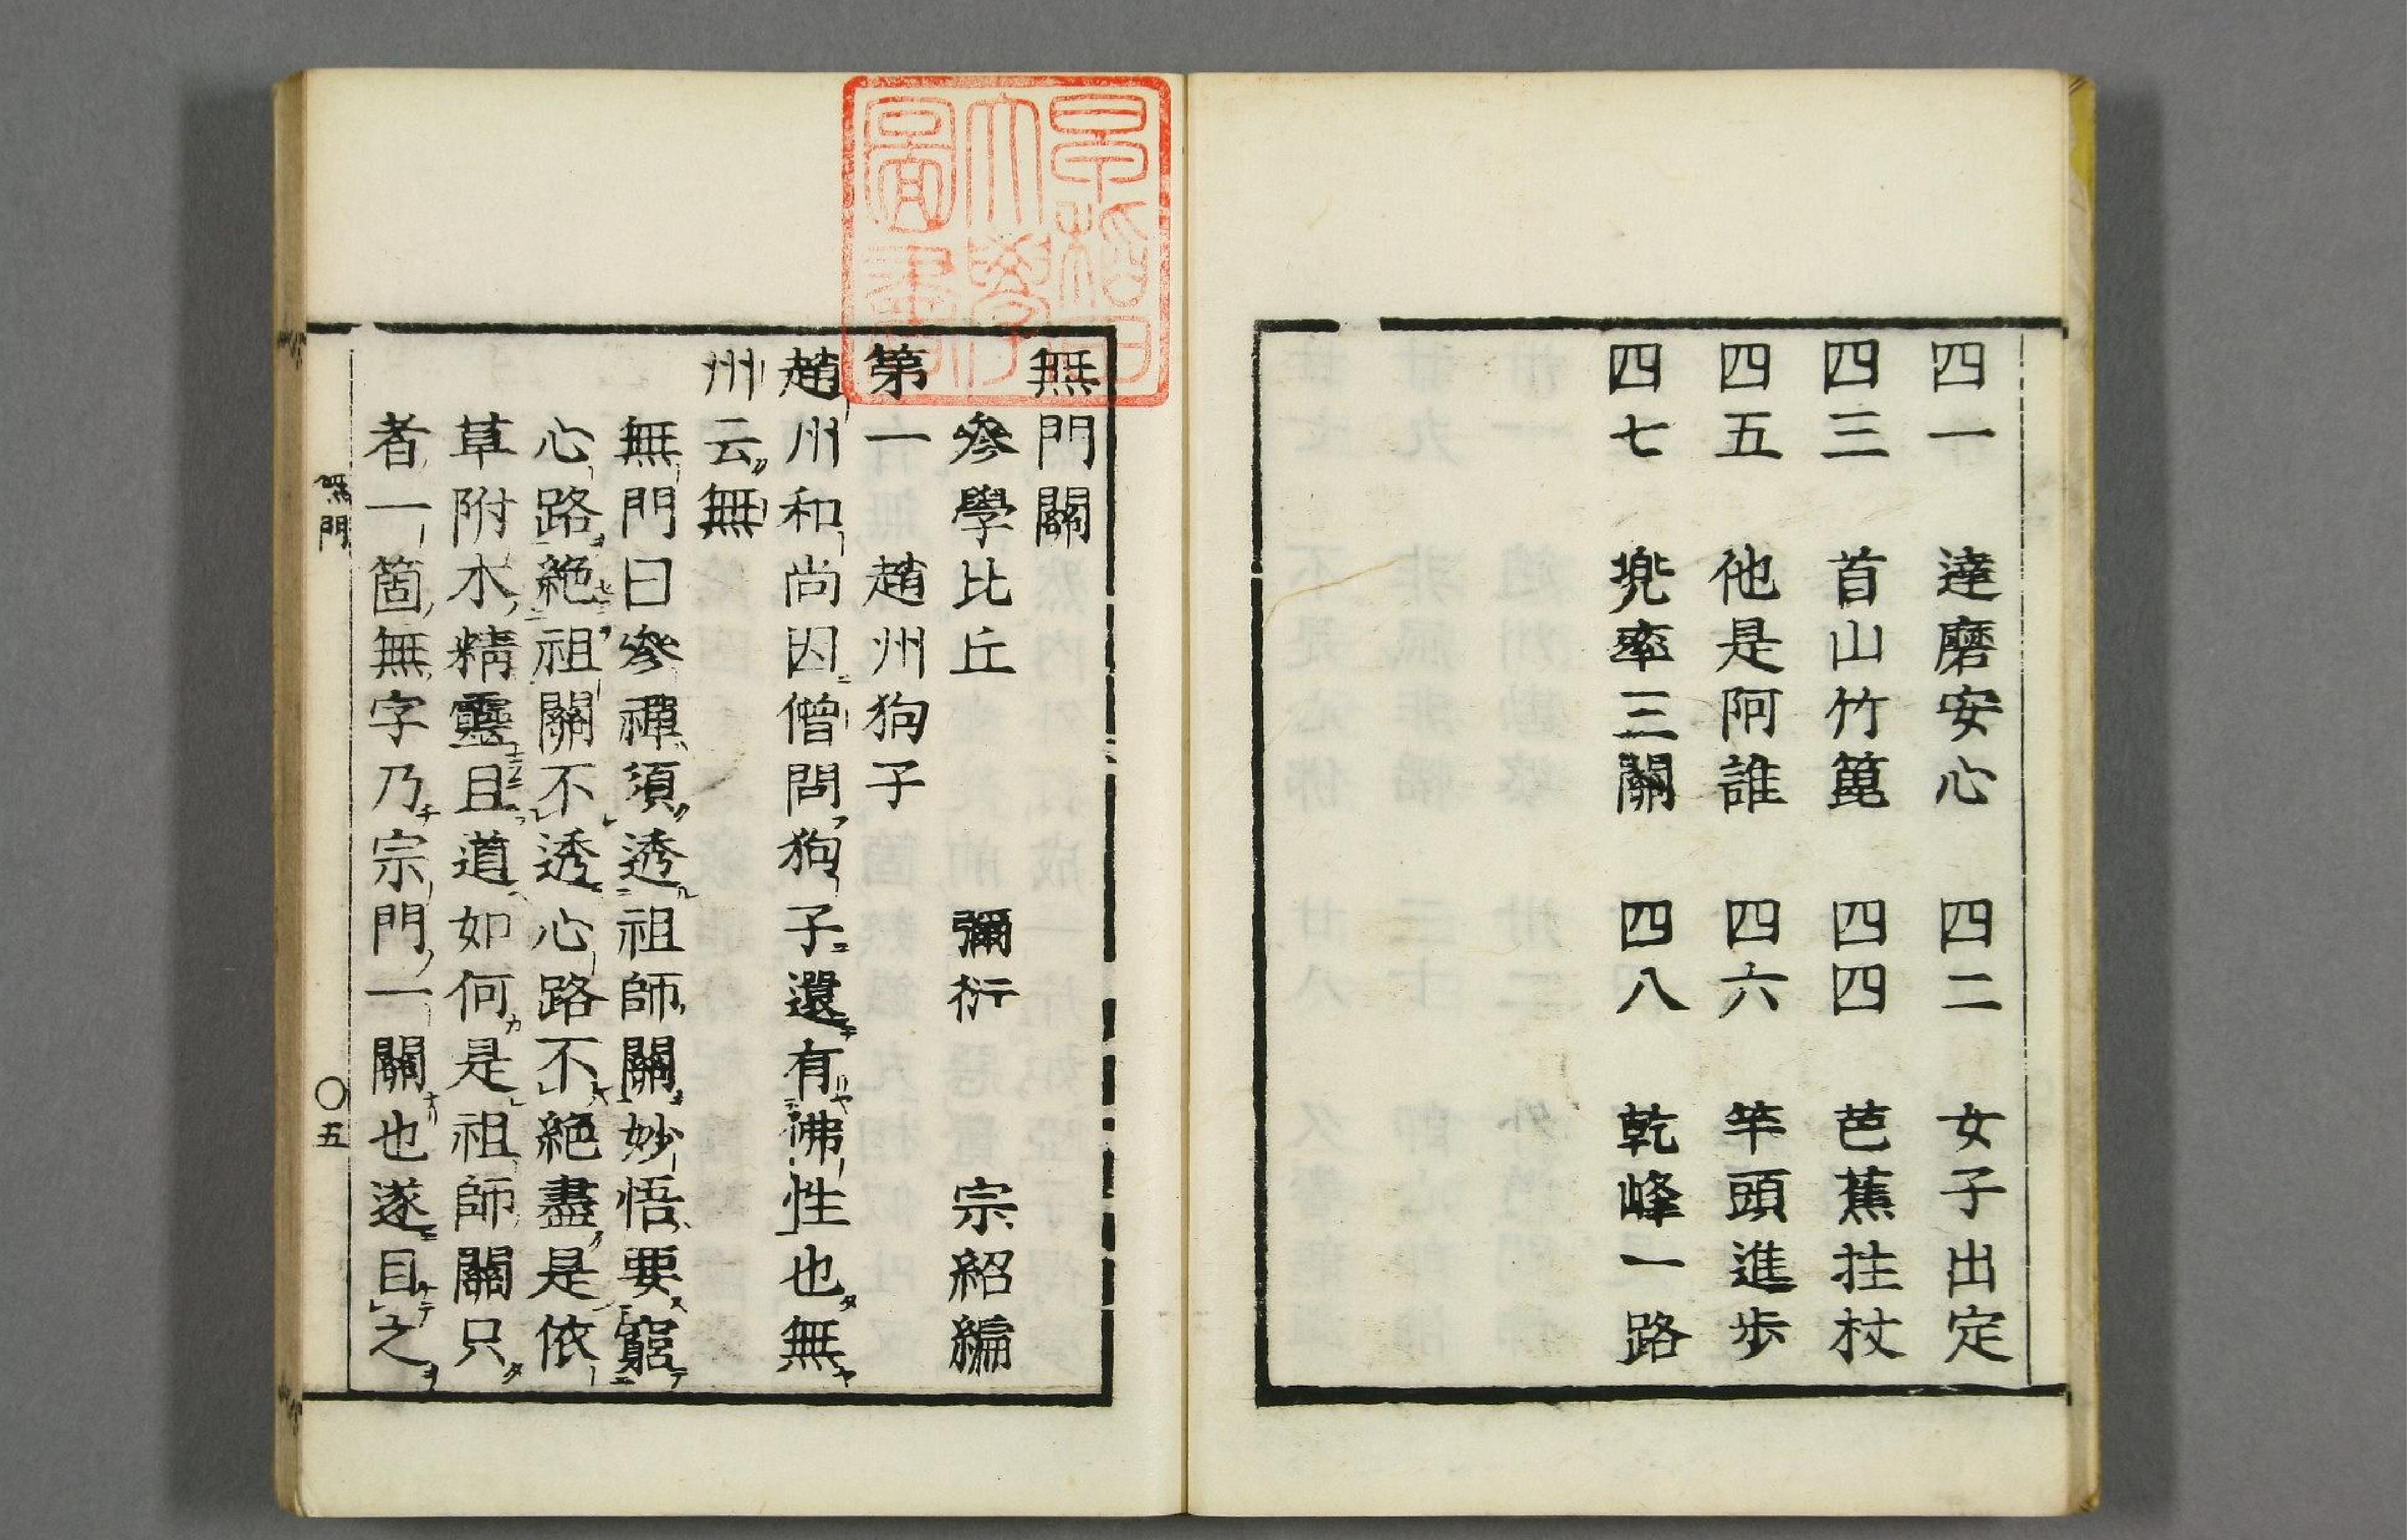 四一　達磨安心　四二　女子出定
四三　首山竹篦　四四　芭蕉拄杖
四五　他是阿誰　四六　竿頭進步
四七　兠率三關　四八　乾峰一路
早稻田
大學
圖書
無門關
參學比丘　彌衍　宗紹編
第一　趙州狗子
趙州和尚因僧問狗子還有佛性也無
州云無
無門曰參禪須透祖師關妙悟要窮
心路絕祖關不透心路不絕盡是依
草附木精靈且道如何是祖師關只
者一箇無字乃宗門一關也遂目之
無門
〇五